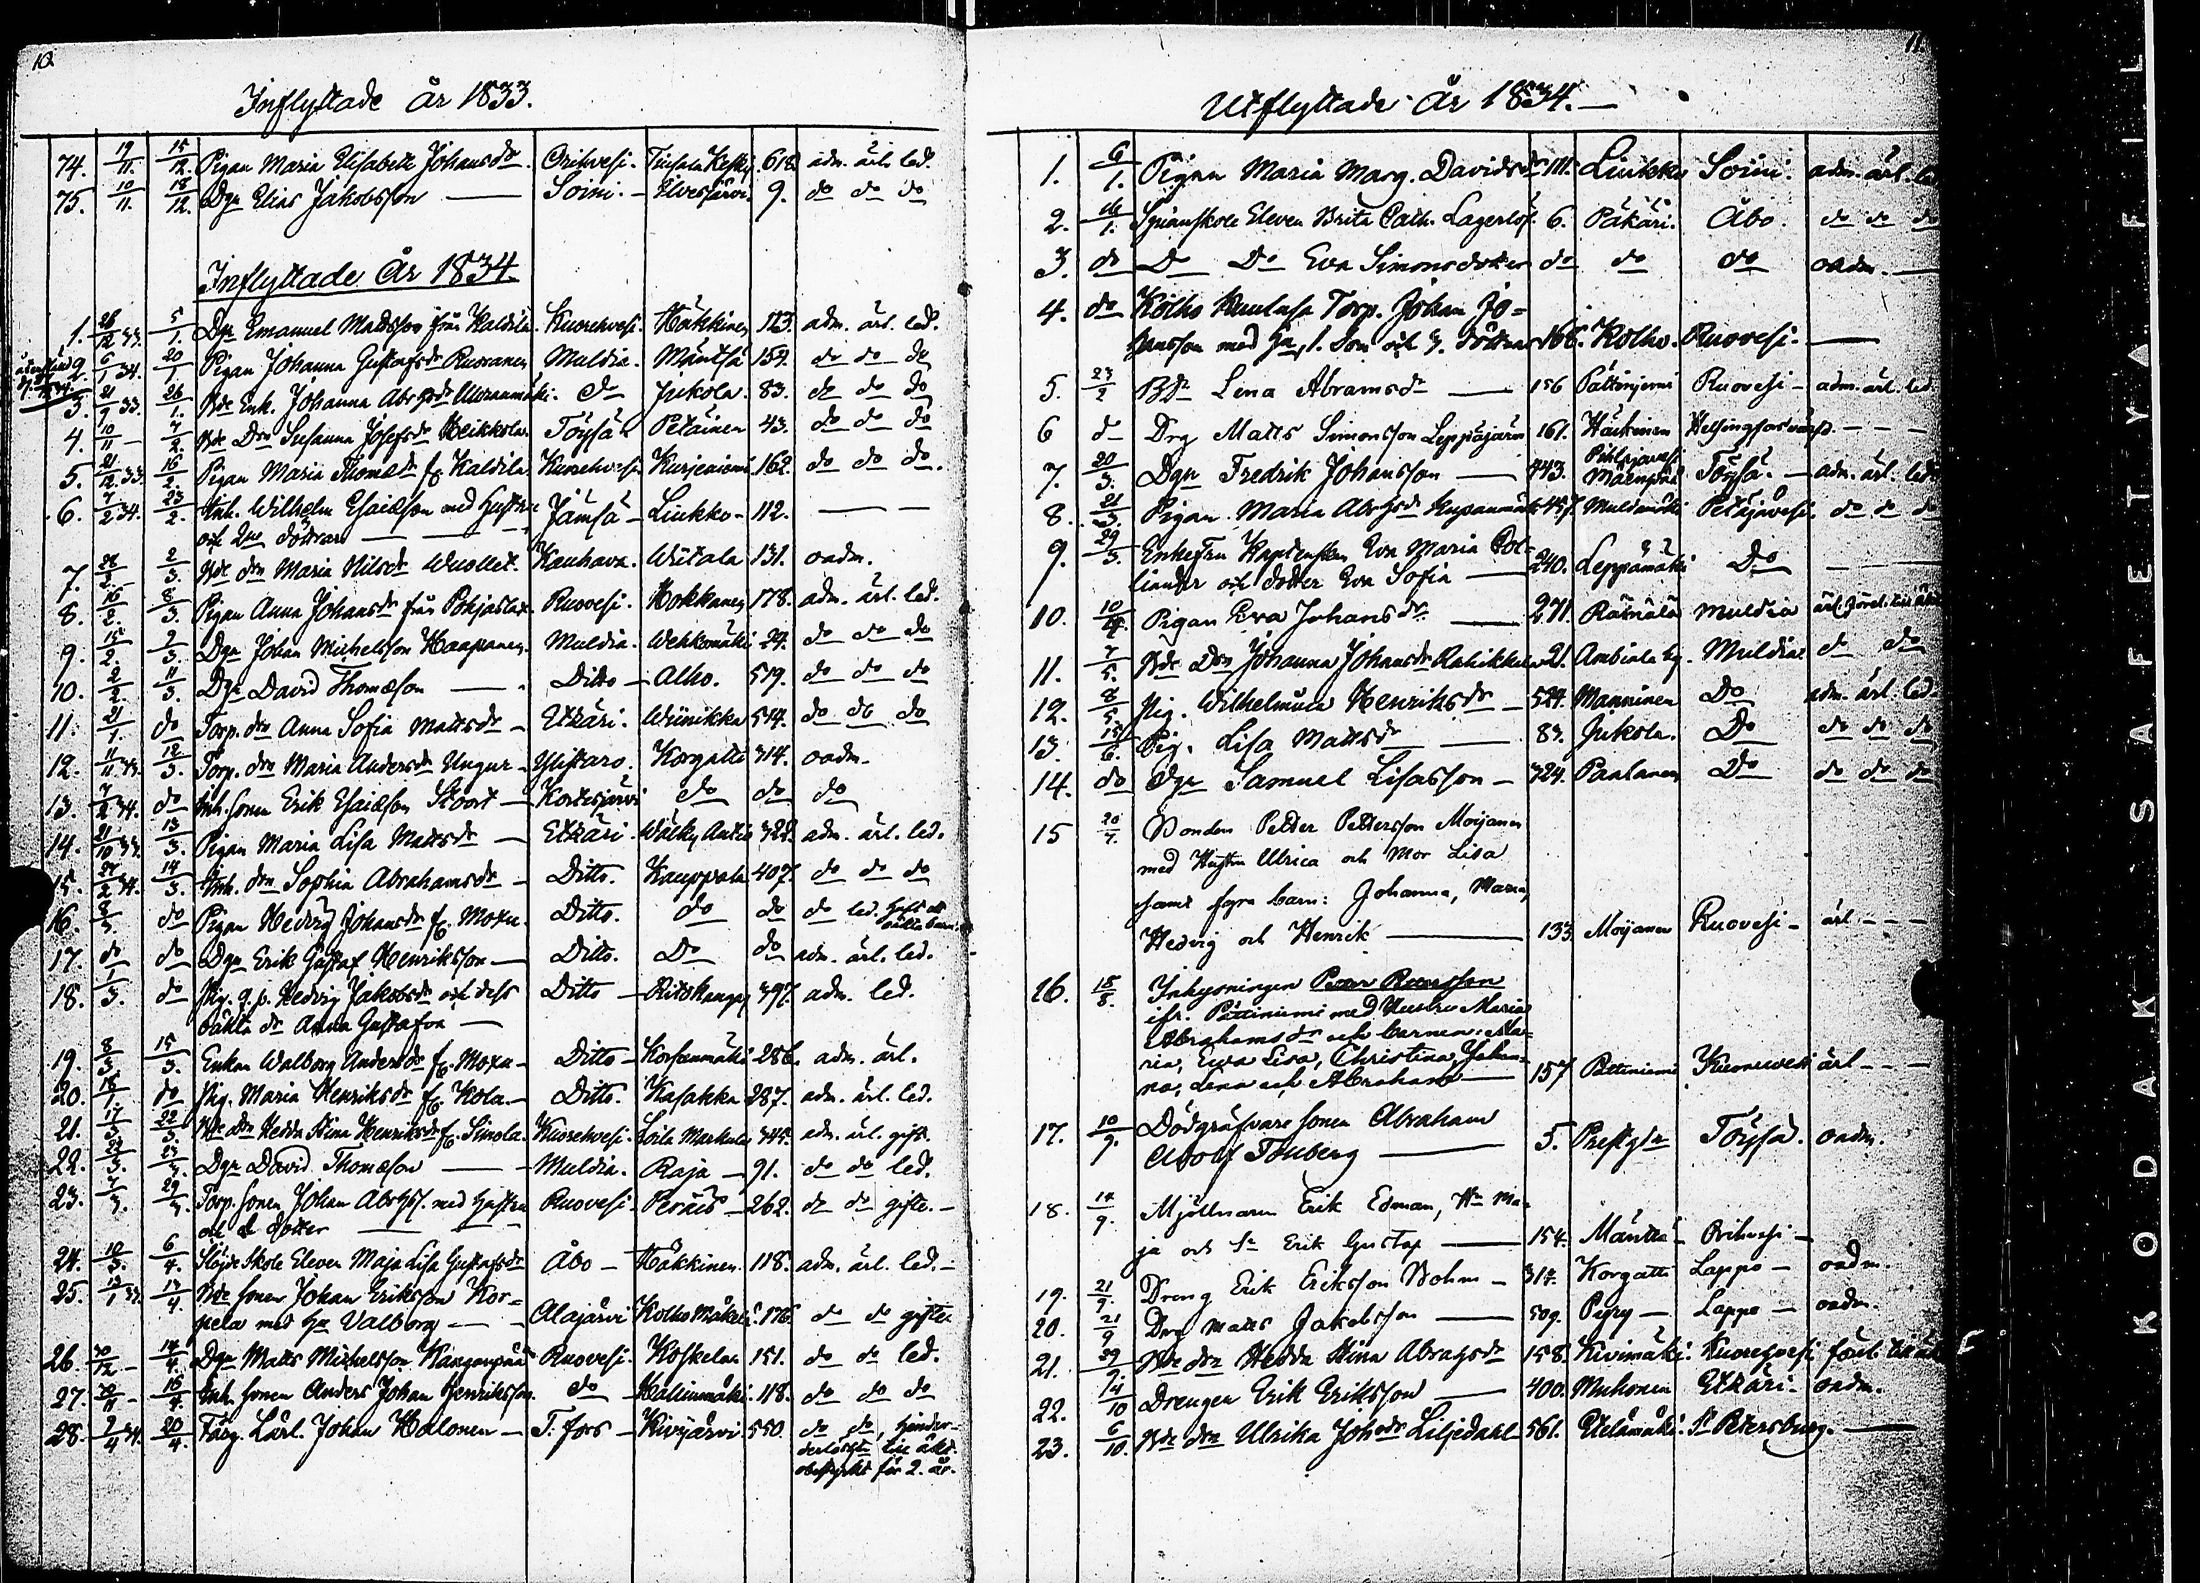 10.
Inflyttade år 1833.
74. 19/11. 15/12. Pigan Maria Elisabete Johansdr. Orihvesi. 618. adm. ärl. led.
75. 10/11. 18/12. Dgn Elias Jakobsson — Soini. — Elvesjärvi. 9. do do do
Inflyttade år 1834.
1. 26/12 33. 5/1. Dgn Emanuel Mattsson från Kaldila. Kuorehvesi. Häkkinen 123. adm. ärl. led.
2. 6/1 34. 20/1. Pigan Johanna Gustafsdr Ruoranen Muldia. Mäntsä 154. do do do
3. 21/9 33. 26/1. Bde Enk. Johanna do Jukola. 83. do do do
4. 10/11 — 7/2. Bde Drn Susanna Josefsdr Heikkola. Töysä Petäinen 43. do do do
5. 21/12. 33. 16/2. Pigan Maria Thomædr fr. Kaldila Kuorehvesi Kurjeniemi 162. do do do.
6. 7/2 34. 23/2. Inh. Wilhelm Esaiæson med Hustru Jämsä — Liukko — 112. — —
och 2ne döttrar — — —
7. 26/2. — 2/3. Bde drn Maria Nilsdr Wuollet. Kauhava. Wiitala 131. oadm.
8. 16/2. 8/3. Pigan Anna Johansdr från Pohjaslax. Ruovesi. Hokkanen 178. adm. ärl. led.
9. 15/2. 2/3. Dgn Johan Michelsson Haapanen. Muldia. Wehkomäki 24. do do do
10. 2/2. 11/3. Dgn David Thomæson — Ditto — Alho. 519. do do do
11. 21/1. do Torp. drn Anna Sofia Mattsdr — Etzäri. Wiinikka 514. do do do
12. 11/11 33. 12/3. Torp. drn Maria Andersdr Ungur — Ylistaro. Korgatti 314. oadm.
13. 7/2 34. do Inh. sonen Erik Esaiæson Stoort — Kortesjärvi do do do
14. 21/10 33. 13/3. Pigan Maria Lisa Mattsdr — Etzäri. 322. adm. ärl. led.
15. 24/2 34. 14/3. Inh. drn Sophia Abrahamsdr — Ditto. Kauppala 407. do do do
16. 8/3. do Pigan Hedvig Johansdr fr. Moxu. Ditto. do do do led.
17. do do Dgn Erik Gustaf Henriksson — Ditto. Do do adm. ärl. led.
18. 1/3. do Pig. Hedvig Jakobsdr och dess Ditto — 397. adm. led.
oäkta dr Anna Gustafva —
19. 8/3. 15/3. Enkan Walborg Andersdr fr. Moxu — Ditto — 286. adm. ärl.
20. 16/1. do Pig. Maria Henriksdr fr. Kola — Ditto. Kasakka 287. adm. ärl. led.
21. 17/3. 22/3. Bde drn Hedda Stina Henriksdr fr. Simola. Kuorehvesi. Loila Markula 345. adm. ärl. gift.
22. 22/3. 23/3. Dgn David Thomæson — Muldia. Raja — 91. do do led.
23. 7/3. 29/3. Torp. sonen Johan med Hustru Ruovesi — 262. do do gifte. —
och 1 dotter
24. 10/3. 6/4. Slöjde Skole Eleven Maja Lisa Gustafsdr Åbo — Häkkinen. 118. adm. ärl. led. —
25. 13/4. Bde sonen Johan Eriksson Kor=
pela med Hu Valborg — Alajärvi Kolho Mäkelä. 176. do do gifte.
26. 30/12 — 14/4. Dgn Matts Michelsson Kangenpää Ruovesi. Koskelan 151. do do led.
27. 16/4. Inh. sonen Anders Johan Henriksson. do Halinmäki. 118. do do do
28. 2/4 34. 20/4. Färg. Lärl. Johan Halonen — T. fors — Kivijärvi 550. do do, hinder-
derlöshet till äkt.
obestyrkt för 2. år.
11.
Utflyttade år 1834. —
1. 6/1. Pigan Maria Marg. Davidsdr 111. Liukko Soini. adm. ärl. led
2. 1. Spinnskole Eleven Brita Cath. Lagerlöf. 6. Päkäri. Åbo. do do do
3. do Do Do Eva Simonsdotter do do do oadm. —
4. do Kolho Torp. Johan Jo=
hansson med Hu, 1. Son och 3. döttrar 166. Kolho. Ruovesi. —
5. 23/2 Lena Abramsdr — 156 Pättiniemi Ruovesi — adm. ärl. led.
6 do Drg Matts Simonsson Leppäjärvi 161. Häckinen Helsingfors — — —
7. 20/3. Dgn Fredrik Johansson — 443. Pihlajavesi Mäenpää Töysä. — adm. ärl. led.
8. 21/3. Pigan Maria 457. Muldamäki Petäjävesi. do do do
9. 29/3. Enkefru Kaptenskan Eva Maria Pol=
liander och dotter Eva Sofia — 240. Leppämäki Do — — —
10. 10/4. Pigan Eva Johansdr — 271. Muldia ärl.
11. 7/5. Bde Drn Johanna Johansdr Rahikkala 21. Ambiala Muldia. do do
12. 8/5. Pig. Wilhelmina Henriksdr — 524. Manninen Do adm. ärl. led.
13. 15/6. Pig. Lisa Mattsdr — 83. Jukola. Do do do do
14. do Dgn Samuel Lisasson — 324. Paalanen Do do do do
15 20/7. Bonden Petter Pettersson Moijanen
med Hustru Ulrica och Mor Lisa
samt fyra barn: Johanna, Maria,
Hedvig och Henrik — 133 Moijanen Ruovesi — ärl. — — —
16. 18/8. Inhysningen
ifr. Pättiniemi med Hustru Maria
Abrahamsdr och barnen: Ma-
ria, Ewa Lisa, Christina, Johan-
na, Lena och Abraham — 157 Pättiniemi Kuorewesi ärl — — —
17. 10/9. Dödgräfvare sonen Abraham
Adolf Fouberg — 5. Töysä. oadm.
18. 14/9. Mjölnaren Erik Edman, Hu Ma-
ja och Sn Erik Gustaf — 154. Mänttä — Orihvesi —
19. 21/9. Dreng Erik Eriksson Bohm — 314. Korgatti Lappo — oadm.
20. 21/9 Drg Matts Jakobsson — 509. Pyry — Lappo — oadm.
21. 29/9. Bde drn Hedda Stina 158. Kivimäki. Kuorehvesi
22. 14/10 Drengen Erik Eriksson — 400. Muhonen Etzäri — oadm.
23. 6/10. Bde drn Ulrika Johsdr Liljedahl 561. St Petersburg. —
KODAK SAFETY FILM